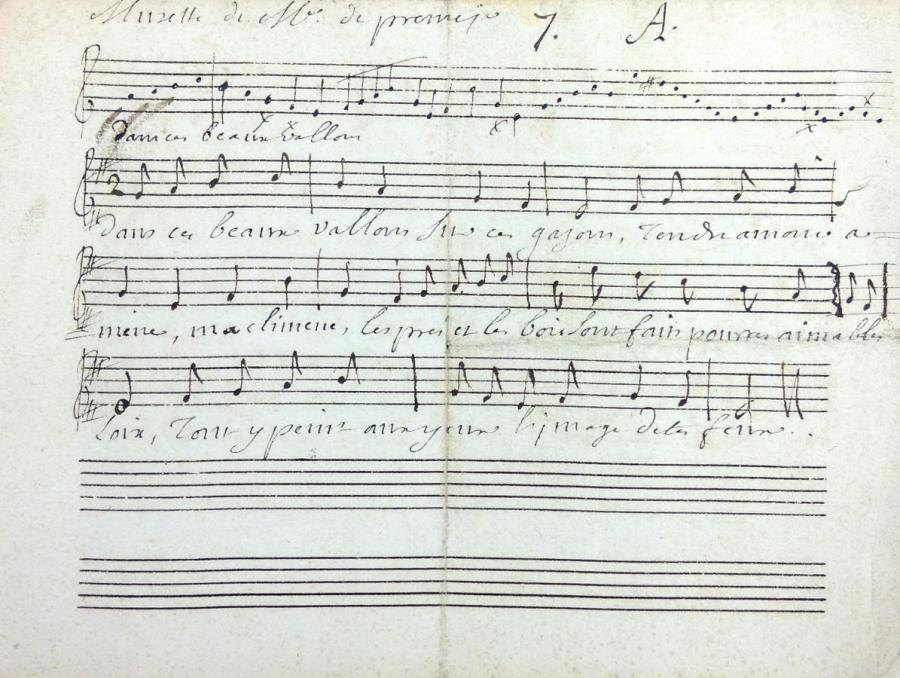 Musette de Mr. de premeje 7. A.
dans ces beaux vallons
2
dans ces beaux vallons sur ces gazons, Tendre amour a=
=mene, ma climene, les pres et les bois sont fais pour tes aimables
loix, Tout y peint aux yeux l'jmage de tes feux.